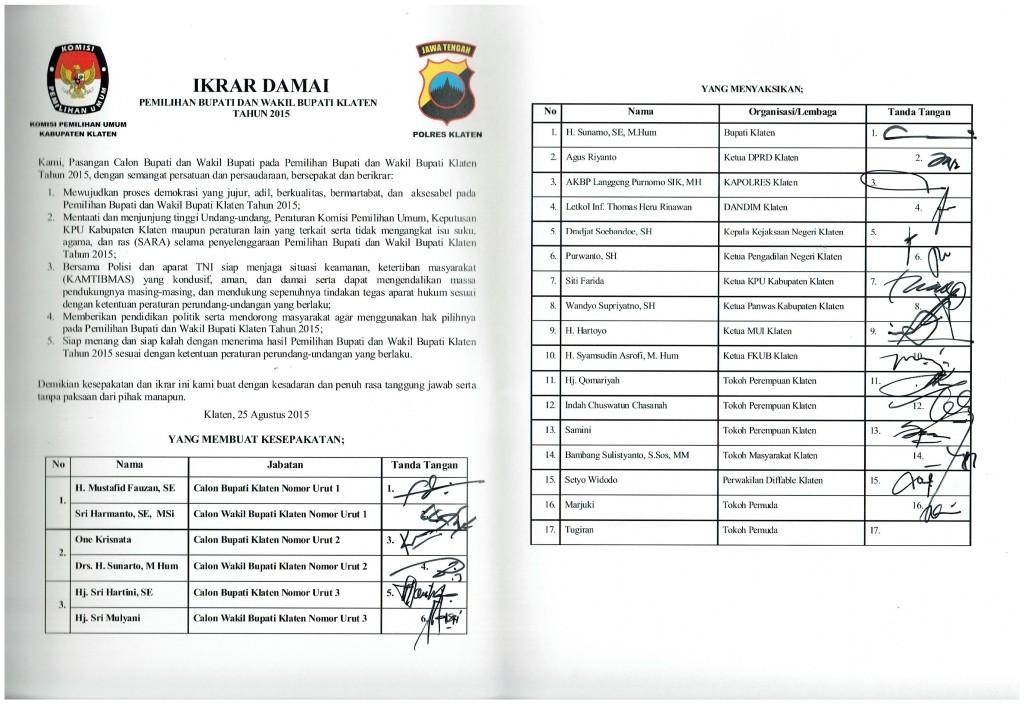 KOMISI
PEMILIHAN UMUM
KOMISI PEMILIHAN UMUM
KABUPATEN KLATEN
IKRAR DAMAI
PEMILIHAN BUPATI DAN WAKIL BUPATI KLATEN
TAHUN 2015
JAWA TENGAH
POLRES KLATEN
Kami, Pasangan Calon Bupati dan Wakil Bupati pada Pemilihan Bupati dan Wakil Bupati Klaten
Tahun 2015, dengan semangat persatuan dan persaudaraan, bersepakat dan berikrar:
1. Mewujudkan proses demokrasi yang jujur, adil, berkualitas, bermartabat, dan aksesabel pada
Pemilihan Bupati dan Wakil Bupati Klaten Tahun 2015;
2. Mentaati dan menjunjung tinggi Undang-undang, Peraturan Komisi Pemilihan Umum, Keputusan
KPU Kabupaten Klaten maupun peraturan lain yang terkait serta tidak mengangkat isu suku,
agama, dan ras (SARA) selama penyelenggaraan Pemilihan Bupati dan Wakil Bupati Klaten
Tahun 2015;
3. Bersama Polisi dan aparat TNI siap menjaga situasi keamanan, ketertiban masyarakat
(KAMTIBMAS) yang kondusif, aman, dan damai serta dapat mengendalikan massa
pendukungnya masing-masing, dan mendukung sepenuhnya tindakan tegas aparat hukum sesuai
dengan ketentuan peraturan perundang-undangan yang berlaku;
4. Memberikan pendidikan politik serta mendorong masyarakat agar menggunakan hak pilihnya
pada Pemilihan Bupati dan Wakil Bupati Klaten Tahun 2015;
5. Siap menang dan siap kalah dengan menerima hasil Pemilihan Bupati dan Wakil Bupati Klaten
Tahun 2015 sesuai dengan ketentuan peraturan perundang-undangan yang berlaku.
Demikian kesepakatan dan ikrar ini kami buat dengan kesadaran dan penuh rasa tanggung jawab serta
tanpa paksaan dari pihak manapun.
Klaten, 25 Agustus 2015
YANG MEMBUAT KESEPAKATAN;
No Nama Jabatan Tanda Tangan
1. H. Mustafid Fauzan, SE Calon Bupati Klaten Nomor Urut 1 1.
Sri Harmanto, SE, MSi Calon Wakil Bupati Klaten Nomor Urut 1
2. One Krisnata Calon Bupati Klaten Nomor Urut 2 3.
Drs. H. Sunarto, M Hum Calon Wakil Bupati Klaten Nomor Urut 2 4.
3. Hj. Sri Hartini, SE Calon Bupati Klaten Nomor Urut 3 5.
Hj. Sri Mulyani Calon Wakil Bupati Klaten Nomor Urut 3 6.
YANG MENYAKSIKAN;
No Nama Organisasi/Lembaga Tanda Tangan
1. H. Sunarno, SE, M.Hum Bupati Klaten 1.
2. Agus Riyanto Ketua DPRD Klaten 2.
3. AKBP Langgeng Purnomo SIK, MH KAPOLRES Klaten 3.
4. Letkol Inf. Thomas Heru Rinawan DANDIM Klaten 4.
5. Dradjat Soebandoe, SH Kepala Kejaksaan Negeri Klaten 5.
6. Purwanto, SH Ketua Pengadilan Negeri Klaten 6.
7. Siti Farida Ketua KPU Kabupaten Klaten 7.
8. Wandyo Supriyatno, SH Ketua Panwas Kabupaten Klaten 8.
9. H. Hartoyo Ketua MUI Klaten 9.
10. H. Syamsudin Asrofi, M. Hum Ketua FKUB Klaten 10.
11. Hj. Qomariyah Tokoh Perempuan Klaten 11.
12. Indah Chuswatun Chasanah Tokoh Perempuan Klaten 12.
13. Samini Tokoh Perempuan Klaten 13.
14. Bambang Sulistyanto, S.Sos, MM Tokoh Masyarakat Klaten 14.
15. Setyo Widodo Perwakilan Diffable Klaten 15.
16. Marjuki Tokoh Pemuda 16.
17. Tugiran Tokoh Pemuda 17.